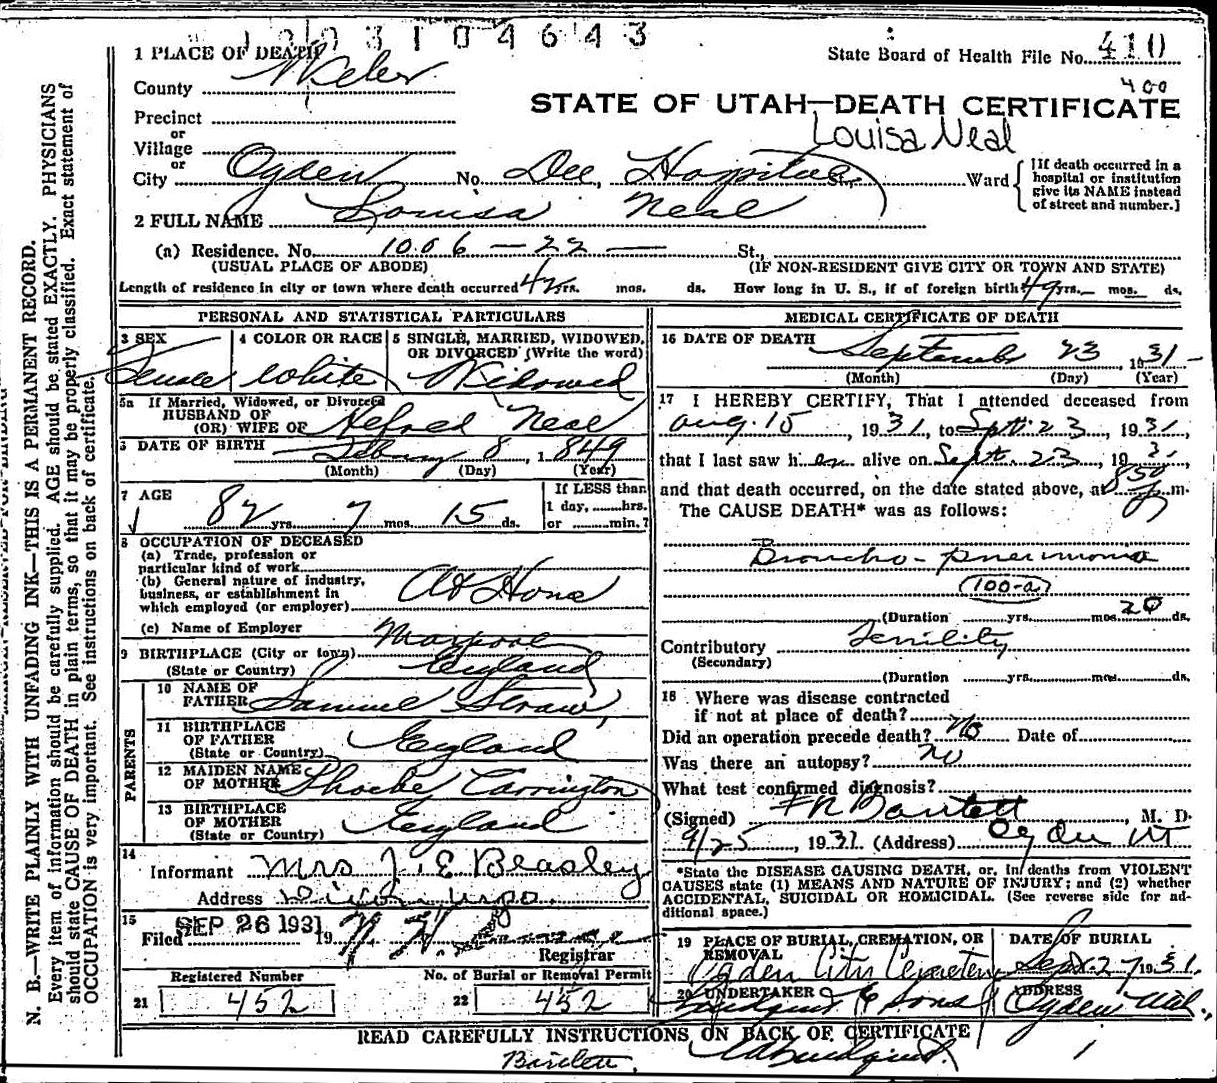 1003104643
1 PLACE OF DEATH
State Board of Health File No. 410
County Weber
400
STATE OF UTAH—DEATH CERTIFICATE
Precinct
or
Village
Louisa Neal
or
City Ogden No. Dee Hospital St., Ward
[If death occurred in a hospital or institution give its NAME instead of street and number.]
2 FULL NAME Louisa Neal
(a) Residence. No. 1006 — 22 — St.,
(USUAL PLACE OF ABODE) (IF NON-RESIDENT GIVE CITY OR TOWN AND STATE)
Length of residence in city or town where death occurred 42 yrs. mos. ds. How long in U. S., if of foreign birth 49 yrs. mos. ds.
PERSONAL AND STATISTICAL PARTICULARS
3 SEX 4 COLOR OR RACE 5 SINGLE, MARRIED, WIDOWED, OR DIVORCED (Write the word)
Female White Widowed
5a If Married, Widowed, or Divorced
HUSBAND OF
(OR) WIFE OF Neal
6 DATE OF BIRTH February 8, 1849
(Month) (Day) (Year)
7 AGE
82 yrs. 7 mos. 15 ds.
If LESS than
1 day, hrs.
or min.?
8 OCCUPATION OF DECEASED
(a) Trade, profession or
particular kind of work
(b) General nature of industry,
business, or establishment in
which employed (or employer)
At Home
(c) Name of Employer
9 BIRTHPLACE (City or town)
(State or Country) England
PARENTS
10 NAME OF
FATHER Samuel Straw
11 BIRTHPLACE
OF FATHER
(State or Country) England
12 MAIDEN NAME
OF MOTHER Phoebe Carrington
13 BIRTHPLACE
OF MOTHER
(State or Country) England
14
Informant Mrs J. E Beasley
Address
15
Filed SEP 26 1931 19
Registrar
Registered Number No. of Burial or Removal Permit
21 452 22 452
MEDICAL CERTIFICATE OF DEATH
16 DATE OF DEATH
September 23, 1931
(Month) (Day) (Year)
17 I HEREBY CERTIFY, That I attended deceased from
Aug. 15, 1931, to Sept. 23, 1931,
that I last saw h er alive on Sept. 23, 193
and that death occurred, on the date stated above, at 850 P m.
The CAUSE DEATH* was as follows:
Broncho-pneumonia
(100-a)
(Duration yrs. mos. 20 ds.
Contributory Senility
(Secondary)
(Duration yrs. mos. ds.
18 Where was disease contracted
if not at place of death?
Did an operation precede death? No Date of
Was there an autopsy? No
What test confirmed diagnosis?
(Signed) F R Bartlett, M. D.
9/25, 1931 (Address) Ogden Ut
*State the DISEASE CAUSING DEATH, or, in deaths from VIOLENT
CAUSES state (1) MEANS AND NATURE OF INJURY; and (2) whether
ACCIDENTAL, SUICIDAL OR HOMICIDAL. (See reverse side for ad-
ditional space.)
19 PLACE OF BURIAL, CREMATION, OR REMOVAL DATE OF BURIAL
Ogden City Cemetery Sept. 27 1931.
20 UNDERTAKER ADDRESS
Lindquist & Sons Ogden Utah.
READ CAREFULLY INSTRUCTIONS ON BACK OF CERTIFICATE
Bartlett.
N. B.—WRITE PLAINLY WITH UNFADING INK—THIS IS A PERMANENT RECORD.
Every item of information should be carefully supplied. AGE should be stated EXACTLY. PHYSICIANS
should state CAUSE OF DEATH in plain terms, so that it may be properly classified. Exact statement of
OCCUPATION is very important. See instructions on back of certificate.